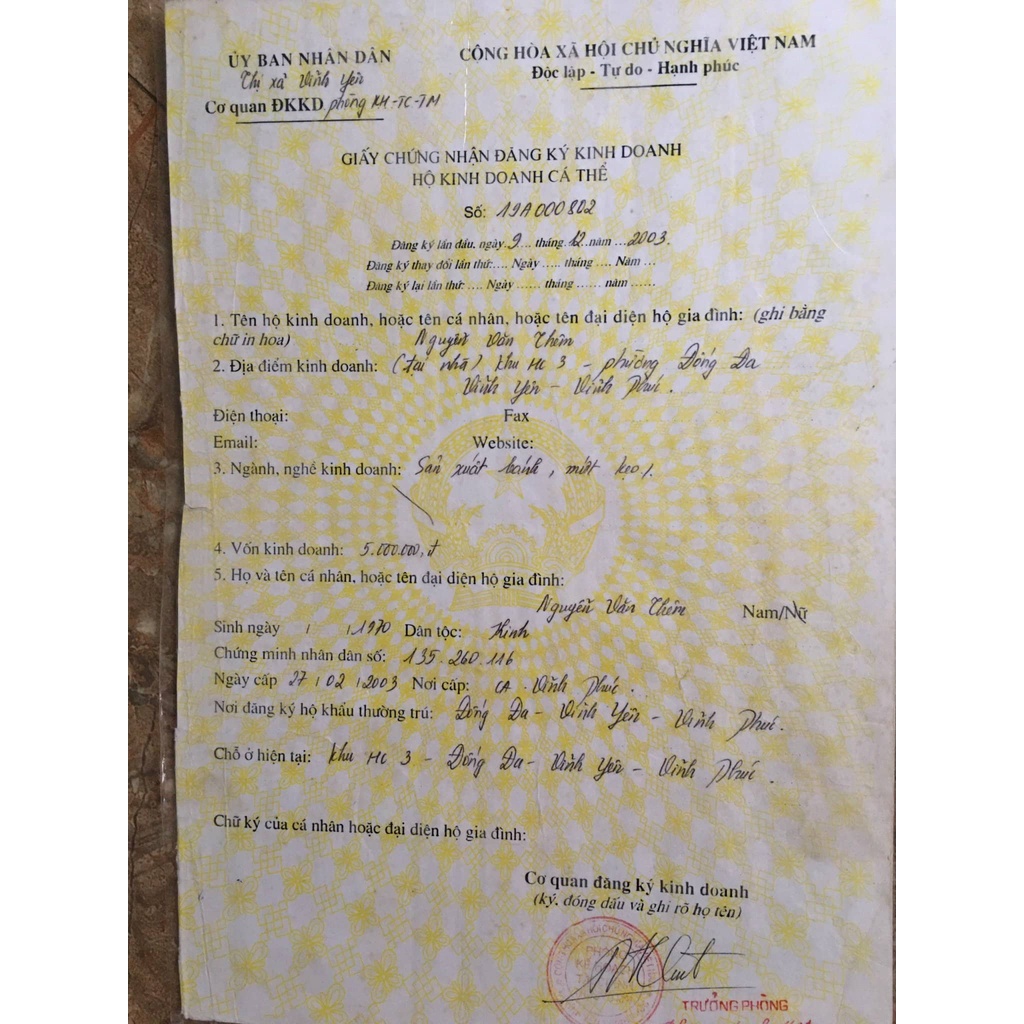 ỦY BAN NHÂN DÂN
Thị xã Vĩnh Yên
Cơ quan ĐKKD phòng KH-TC-TM
CỘNG HÒA XÃ HỘI CHỦ NGHĨA VIỆT NAM
Độc lập - Tự do - Hạnh phúc
GIẤY CHỨNG NHẬN ĐĂNG KÝ KINH DOANH
HỘ KINH DOANH CÁ THỂ
Số: 19A000802
Đăng ký lần đầu, ngày 9 ... tháng 12 năm ... 2003.
Đăng ký thay đổi lần thứ:.... Ngày ..... tháng .... Năm ...
Đăng ký lại lần thứ: .... Ngày ...... tháng ...... năm ......
1. Tên hộ kinh doanh, hoặc tên cá nhân, hoặc tên đại diện hộ gia đình: (ghi bằng
chữ in hoa) Nguyễn Văn Thêm
2. Địa điểm kinh doanh: (tại nhà) khu HC 3 - phường Đống Đa
Vĩnh Yên - Vĩnh Phúc.
Điện thoại: Fax
Email: Website:
3. Ngành, nghề kinh doanh: Sản xuất bánh, mứt kẹo/.
4. Vốn kinh doanh: 5.000.000,đ
5. Họ và tên cá nhân, hoặc tên đại diện hộ gia đình:
Nguyễn Văn Thêm Nam/Nữ
Sinh ngày / / 1970 Dân tộc: Kinh
Chứng minh nhân dân số: 135.260.116
Ngày cấp 27/02/2003 Nơi cấp: CA. Vĩnh Phúc.
Nơi đăng ký hộ khẩu thường trú: Đống Đa - Vĩnh Yên - Vĩnh Phúc.
Chỗ ở hiện tại: khu HC 3 - Đống Đa - Vĩnh Yên - Vĩnh Phúc.
Chữ ký của cá nhân hoặc đại diện hộ gia đình:
Cơ quan đăng ký kinh doanh
(ký, đóng dấu và ghi rõ họ tên)
TRƯỞNG PHÒNG